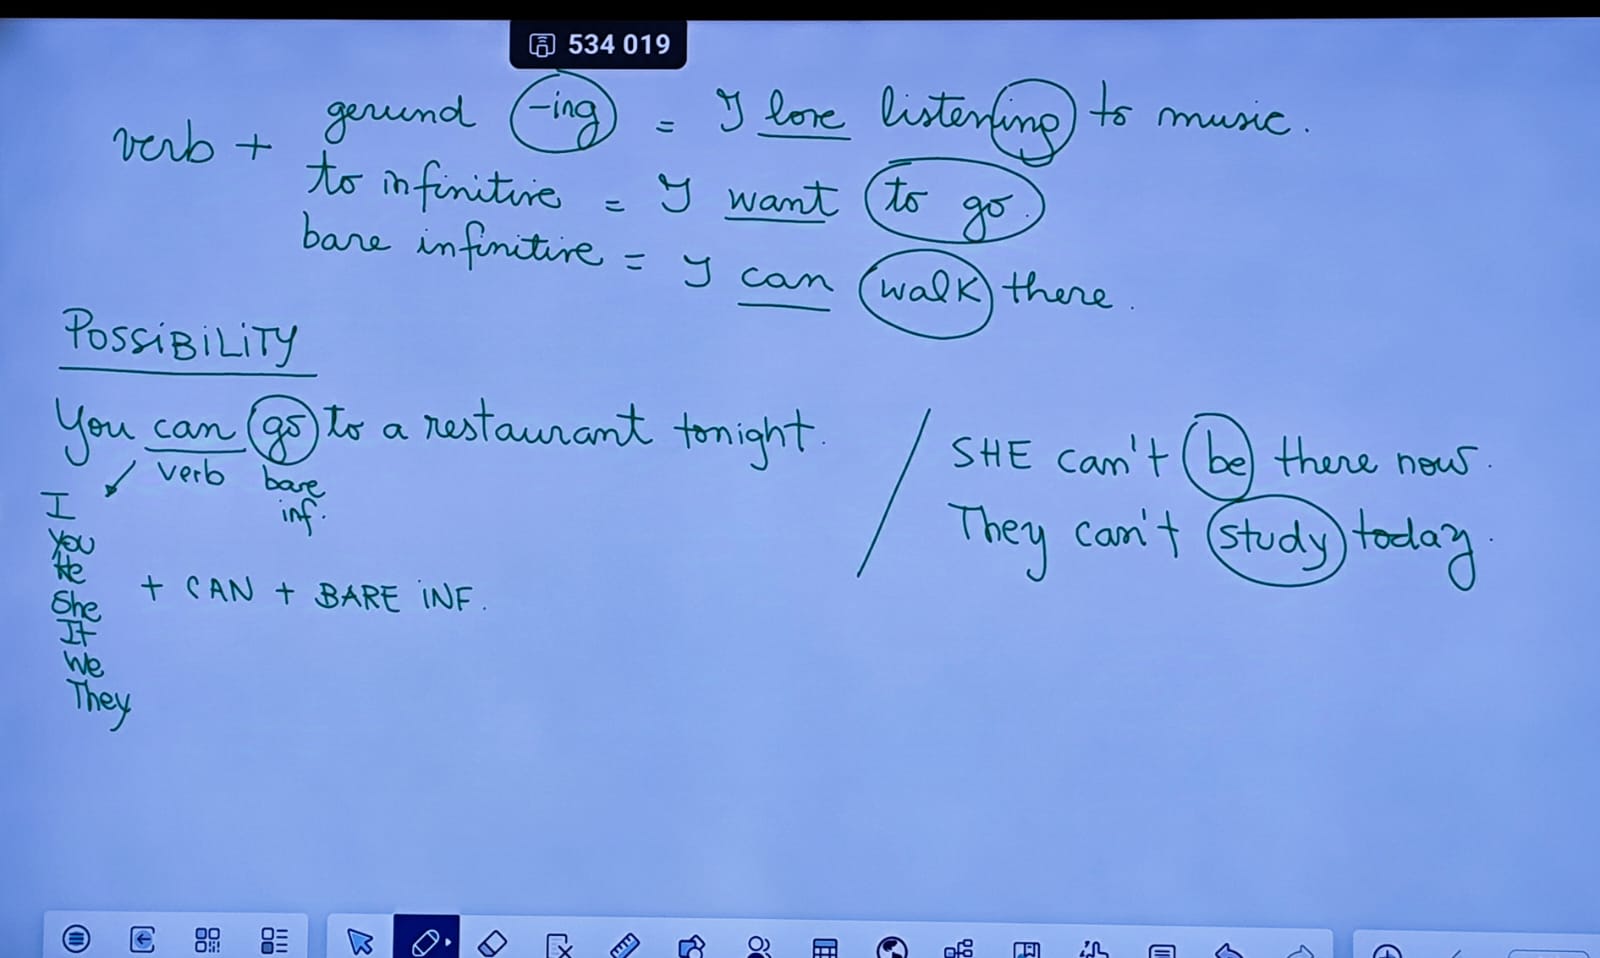 534 019
gerund -ing = I love listening to music.
verb +
to infinitive = I want to go.
bare infinitive = I can walk there.
POSSiBiLiTY
You can go to a restaurant tonight.
verb bare
inf.
I
You
He
She
It
We
They
+ CAN + BARE iNF.
SHE can't be there now.
They can't study today.